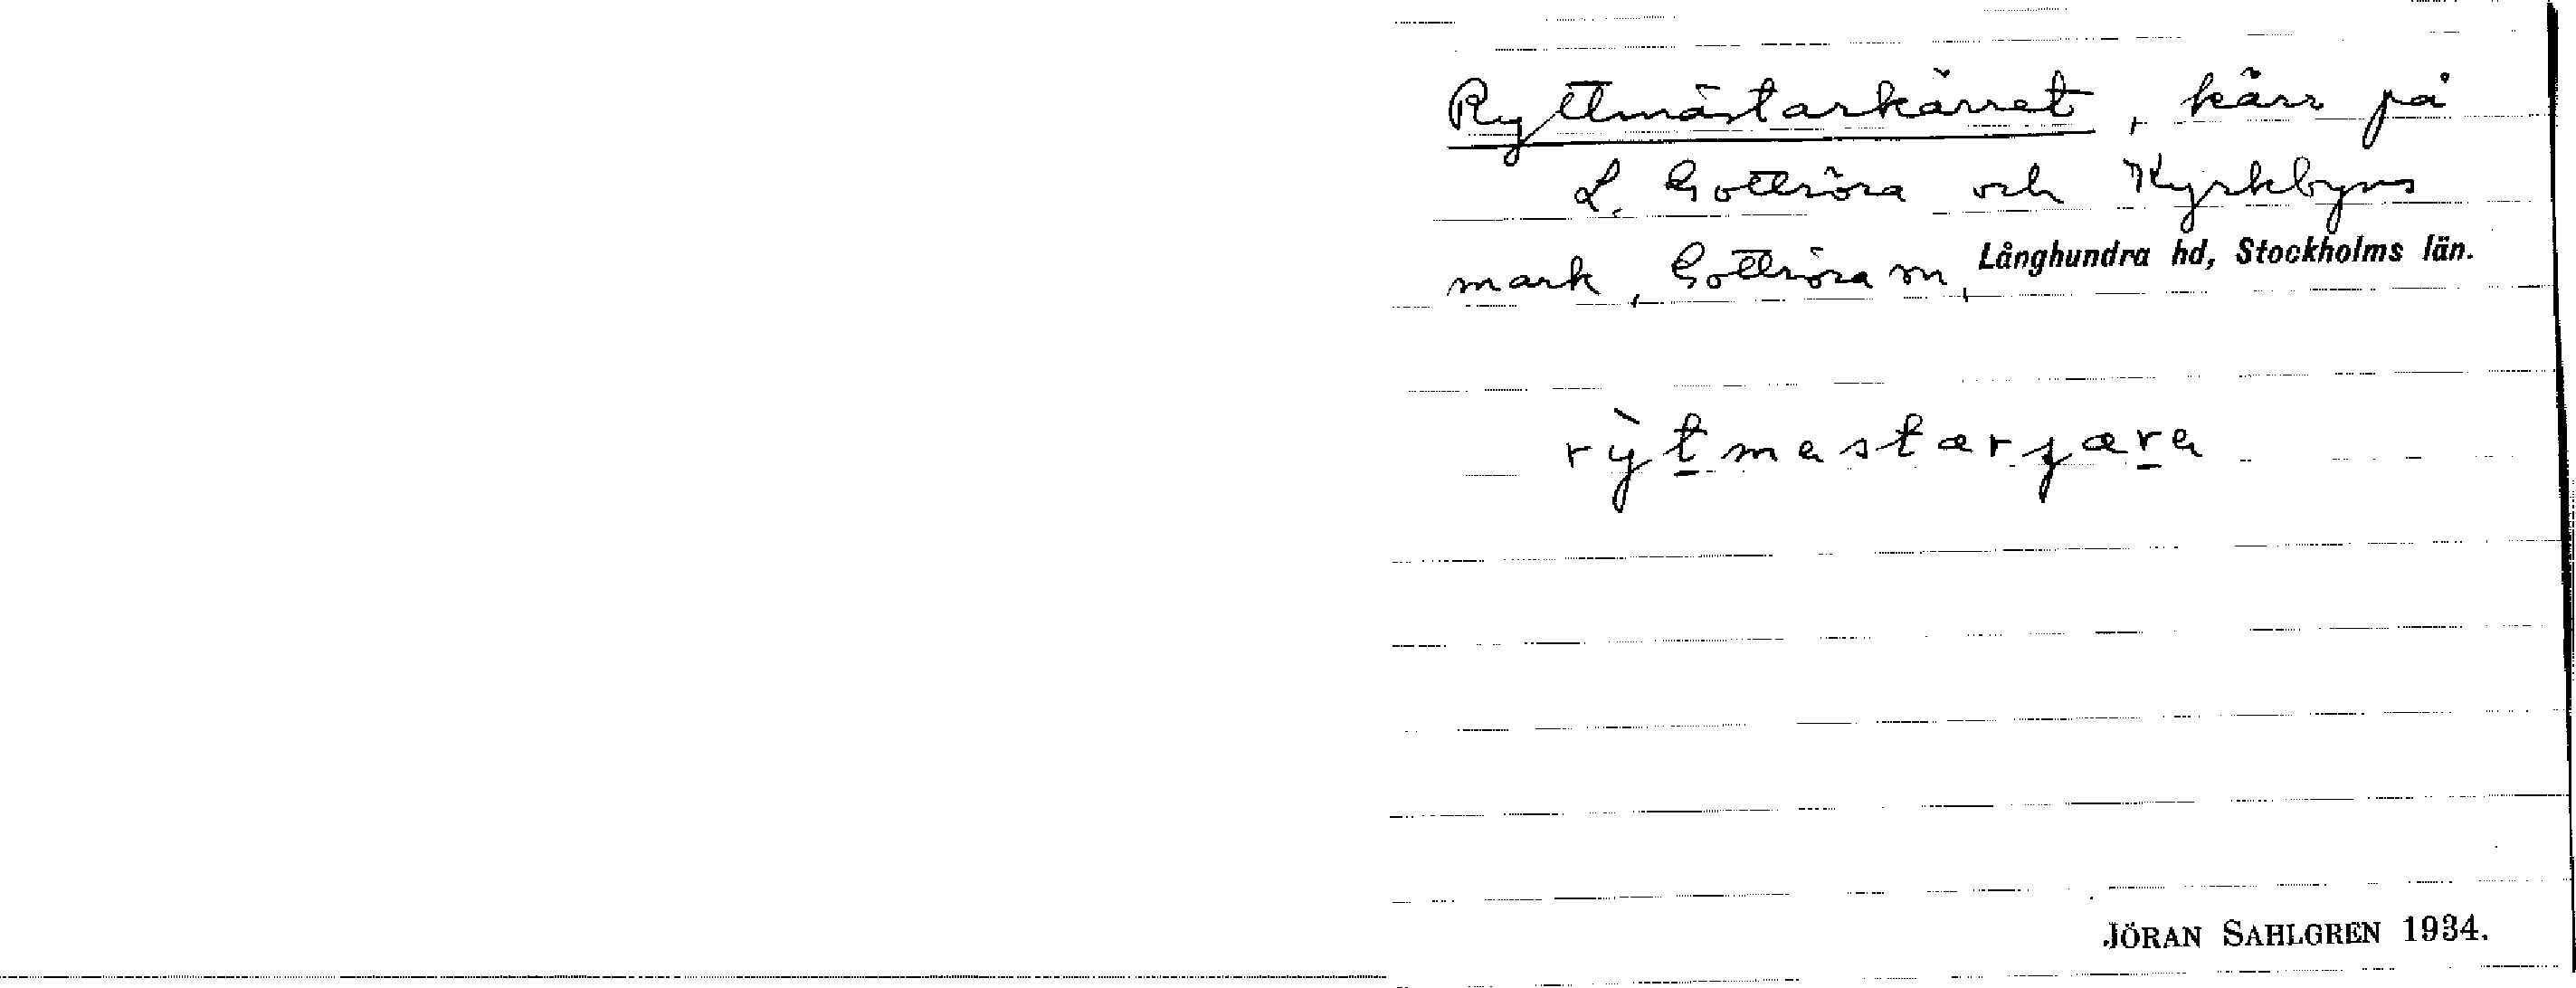 Ryttmästarkärret, kärr på
L. Gottröra och Kyrkbyns
mark, Gottröra sn, Långhundra hd, Stockholms län.
rỳt̲mastærɟær̲a
JÖRAN SAHLGREN 1934.